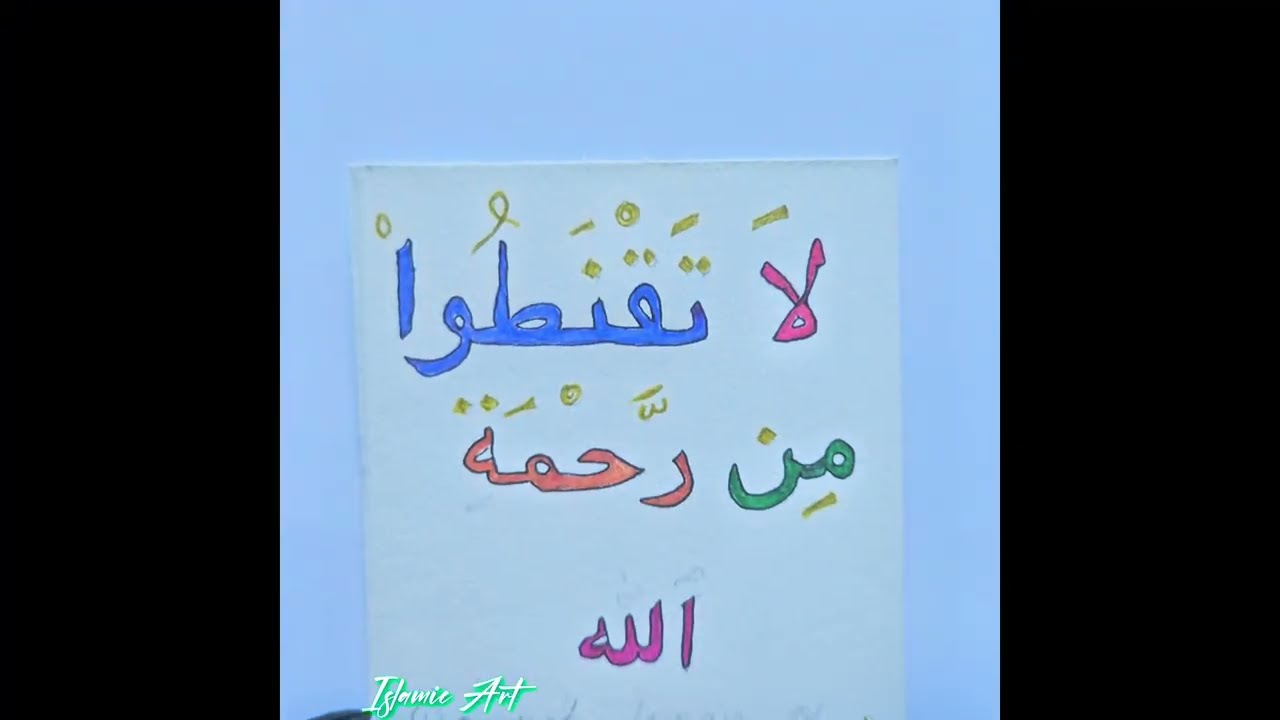 لَا تَقْنَطُواْ
مِن رَّحْمَةَ
الله
Islamic Art